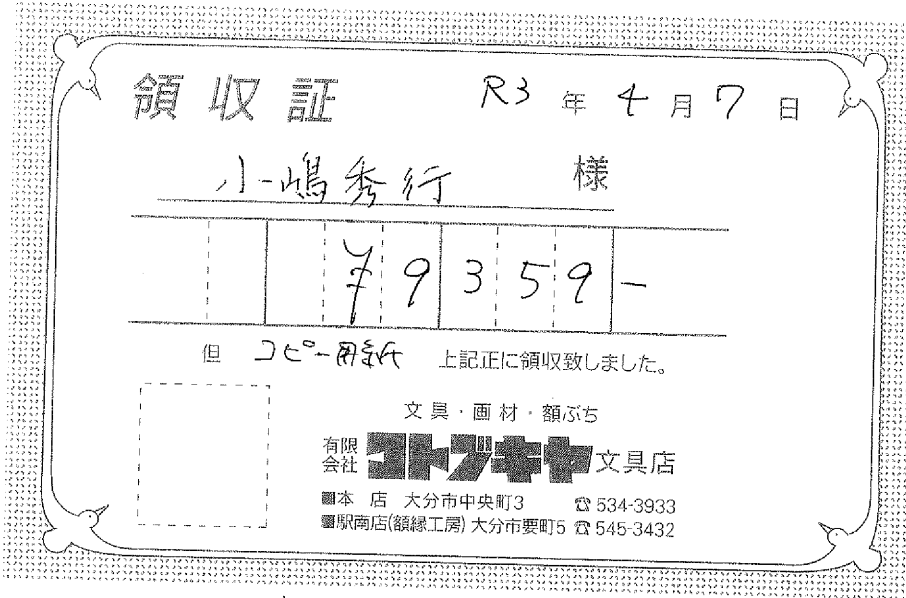 領収証 R3年4月7日
小嶋秀行 様
¥9359-
但 コピー用紙 上記正に領収致しました。
文具・画材・額ぶち
有限会社 コトブキヤ 文具店
■本 店 大分市中央町3 ☎534-3933
■駅南店(額縁工房) 大分市要町5 ☎545-3432